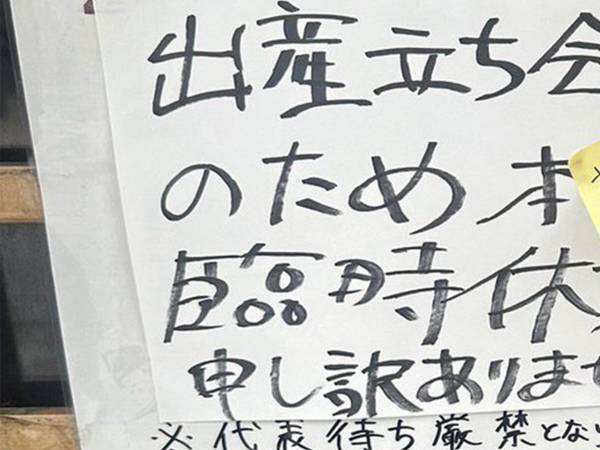 出産立ち会
のため本
臨時休
申し訳ありませ
※代表待ち厳禁とな